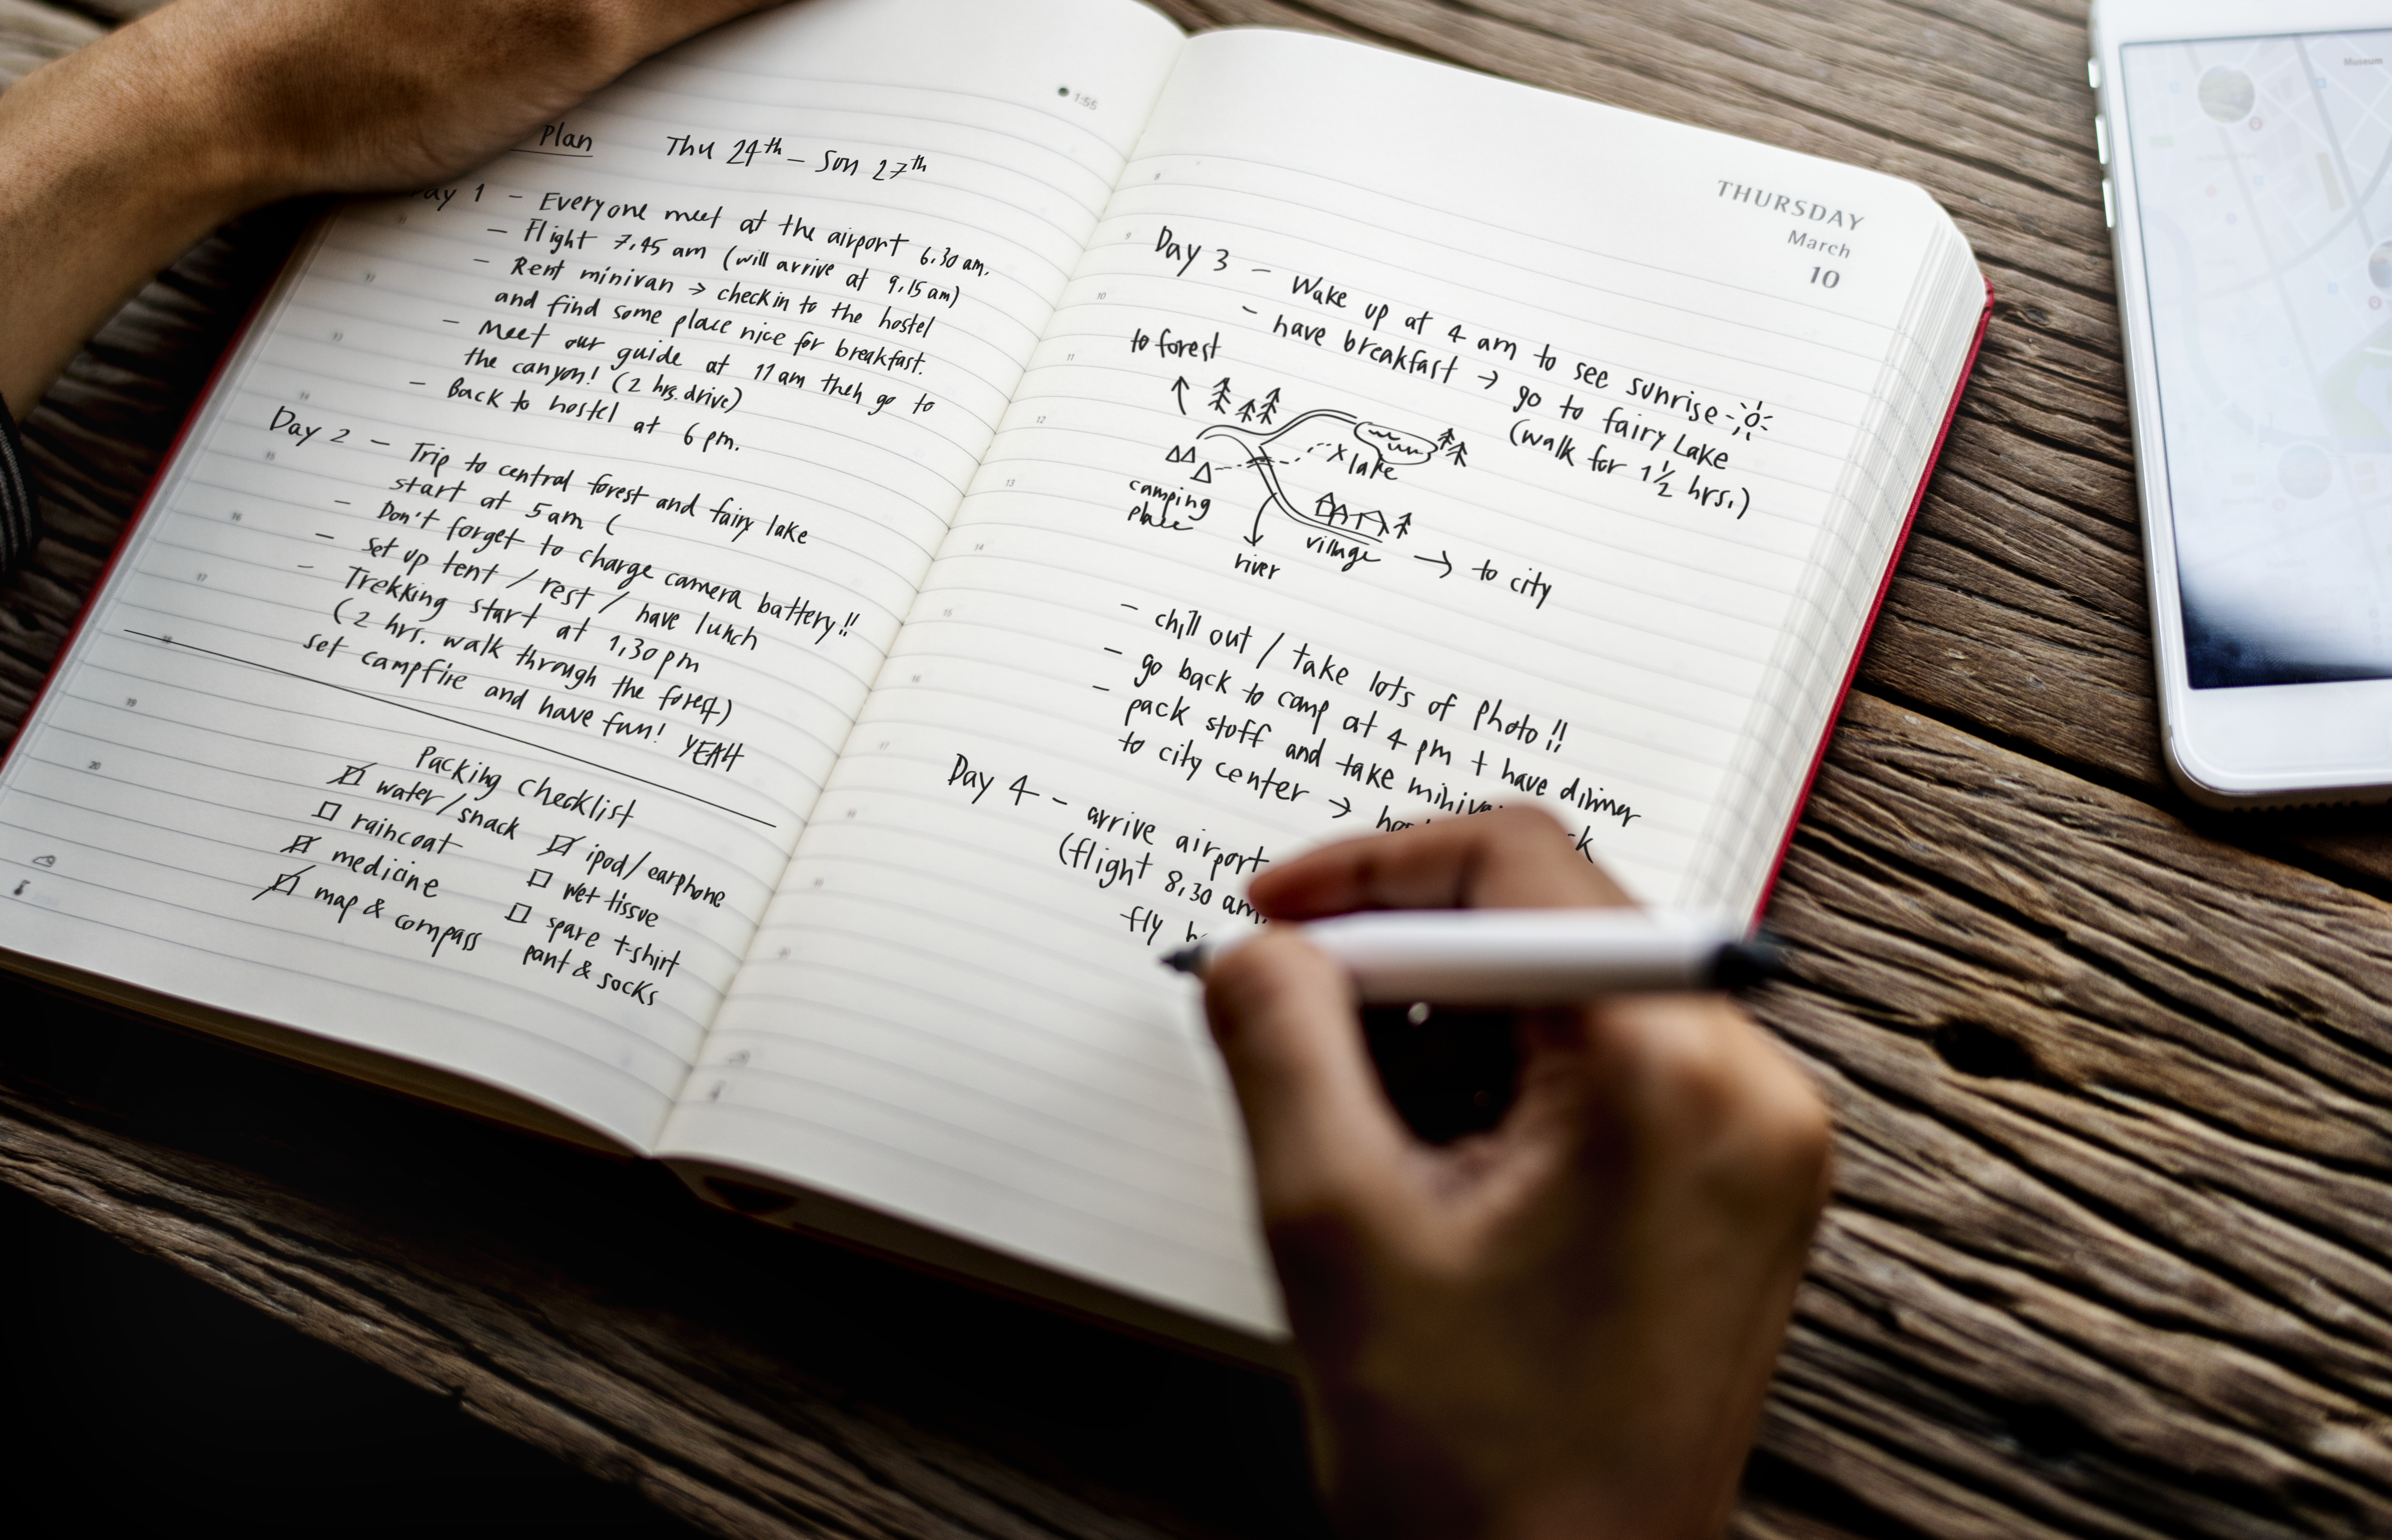 1:55
Plan Thu 24th – Sun 27th
Day 1 – Everyone meet at the airport 6.30 am.
– Flight 7.45 am (will arrive at 9.15 am)
– Rent minivan → check in to the hostel
and find some place nice for breakfast.
– Meet our guide at 11 am then go to
the canyon! (2 hrs. drive)
– Back to hostel at 6 pm.
Day 2 – Trip to central forest and fairy lake
start at 5 am (
– Don't forget to charge camera battery!!
– set up tent / rest / have lunch
– Trekking start at 1.30 pm
(2 hrs. walk through the forest)
set campfire and have fun! YEAH
Packing checklist
water/snack
raincoat
medicine
map & compass
ipod/earphone
wet tissue
spare t-shirt
pant & socks
THURSDAY
March
10
Day 3 – Wake up at 4 am to see sunrise
– have breakfast → go to fairy Lake
(walk for 1 1/2 hrs.)
to forest
x lake
camping
place
river
village → to city
– chill out / take lots of photo!!
– go back to camp at 4 pm + have dinner
– pack stuff and take
to city center →
Day 4 – arrive airport
(flight 8.30 am.
fly
8
9
10
11
12
13
14
15
16
17
Museum